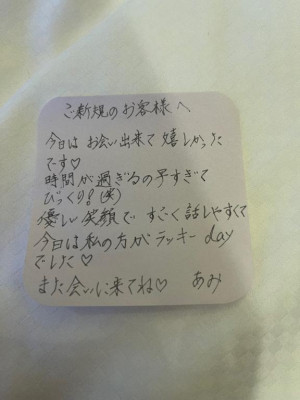 ご新規のお客様へ
今日はお会い出来て嬉しかった
です♡
時間が過ぎるの早すぎて
びっくり!(笑)
優しい笑顔ですごく話しやすくて
今日は私の方がラッキーday
でした♡
また会いに来てね♡ あみ